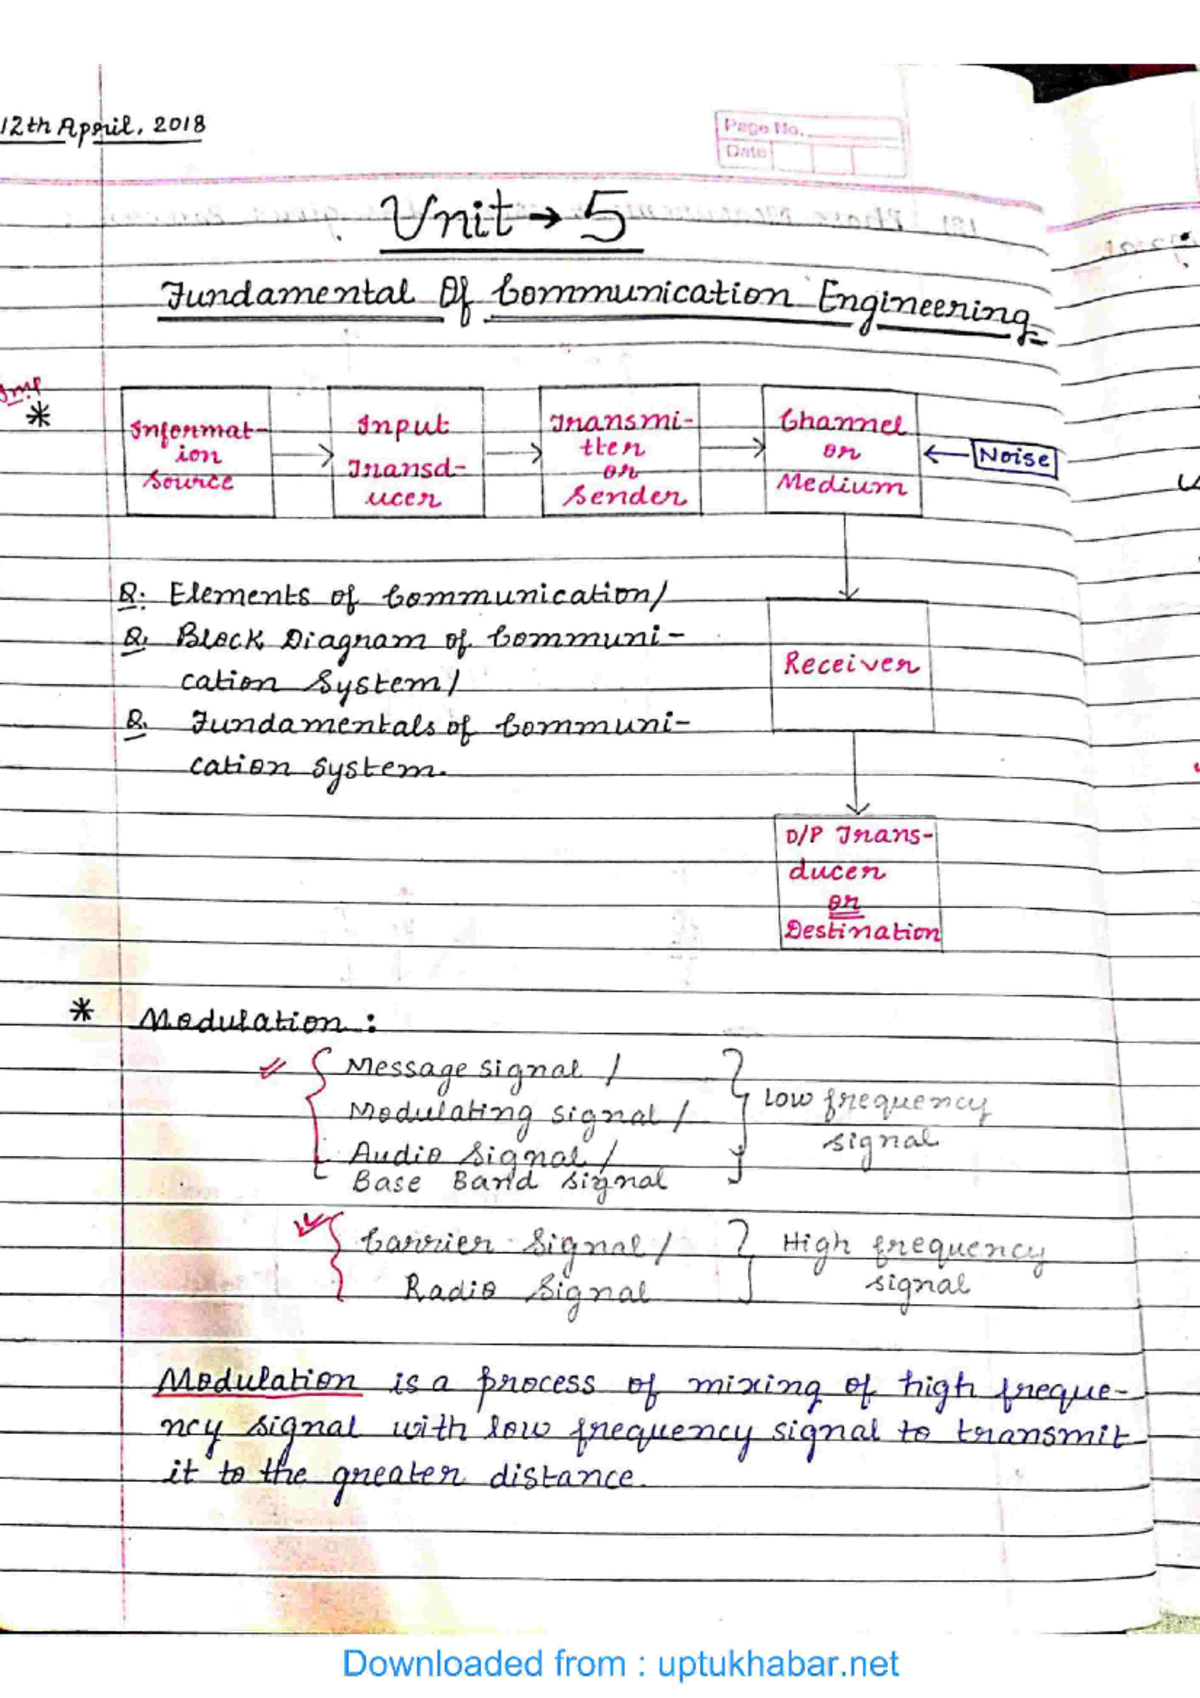 12th April, 2018
Page No.
Date
Unit → 5
Fundamental Of Communication Engineering
Imp
*
Informat-
ion
Source
Input
Transd-
ucer
Transmi-
tter
or
Sender
Channel
or
Medium
Noise
Q. Elements of Communication/
Q. Block Diagram of Communi-
cation System/
Q. Fundamentals of Communi-
cation System.
Receiver
O/P Trans-
ducer
or
Destination
* Modulation :
Message signal /
Modulating signal /
Audio Signal /
Base Band Signal
Low frequency
signal
Carrier Signal /
Radio Signal
High frequency
signal
Modulation is a process of mixing of high freque-
ncy signal with low frequency signal to transmit
it to the greater distance.
Downloaded from : uptukhabar.net